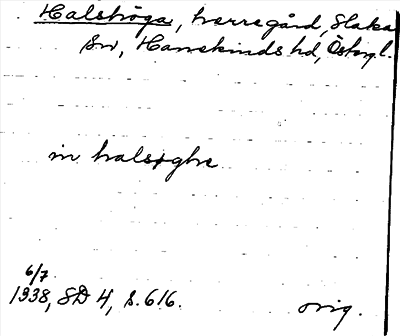 Halshöga, herregård, Slaka
sn, Hanekinds hd, Östergl.
in halsøghe
6/7
1338, SD 4, s. 616.
orig.